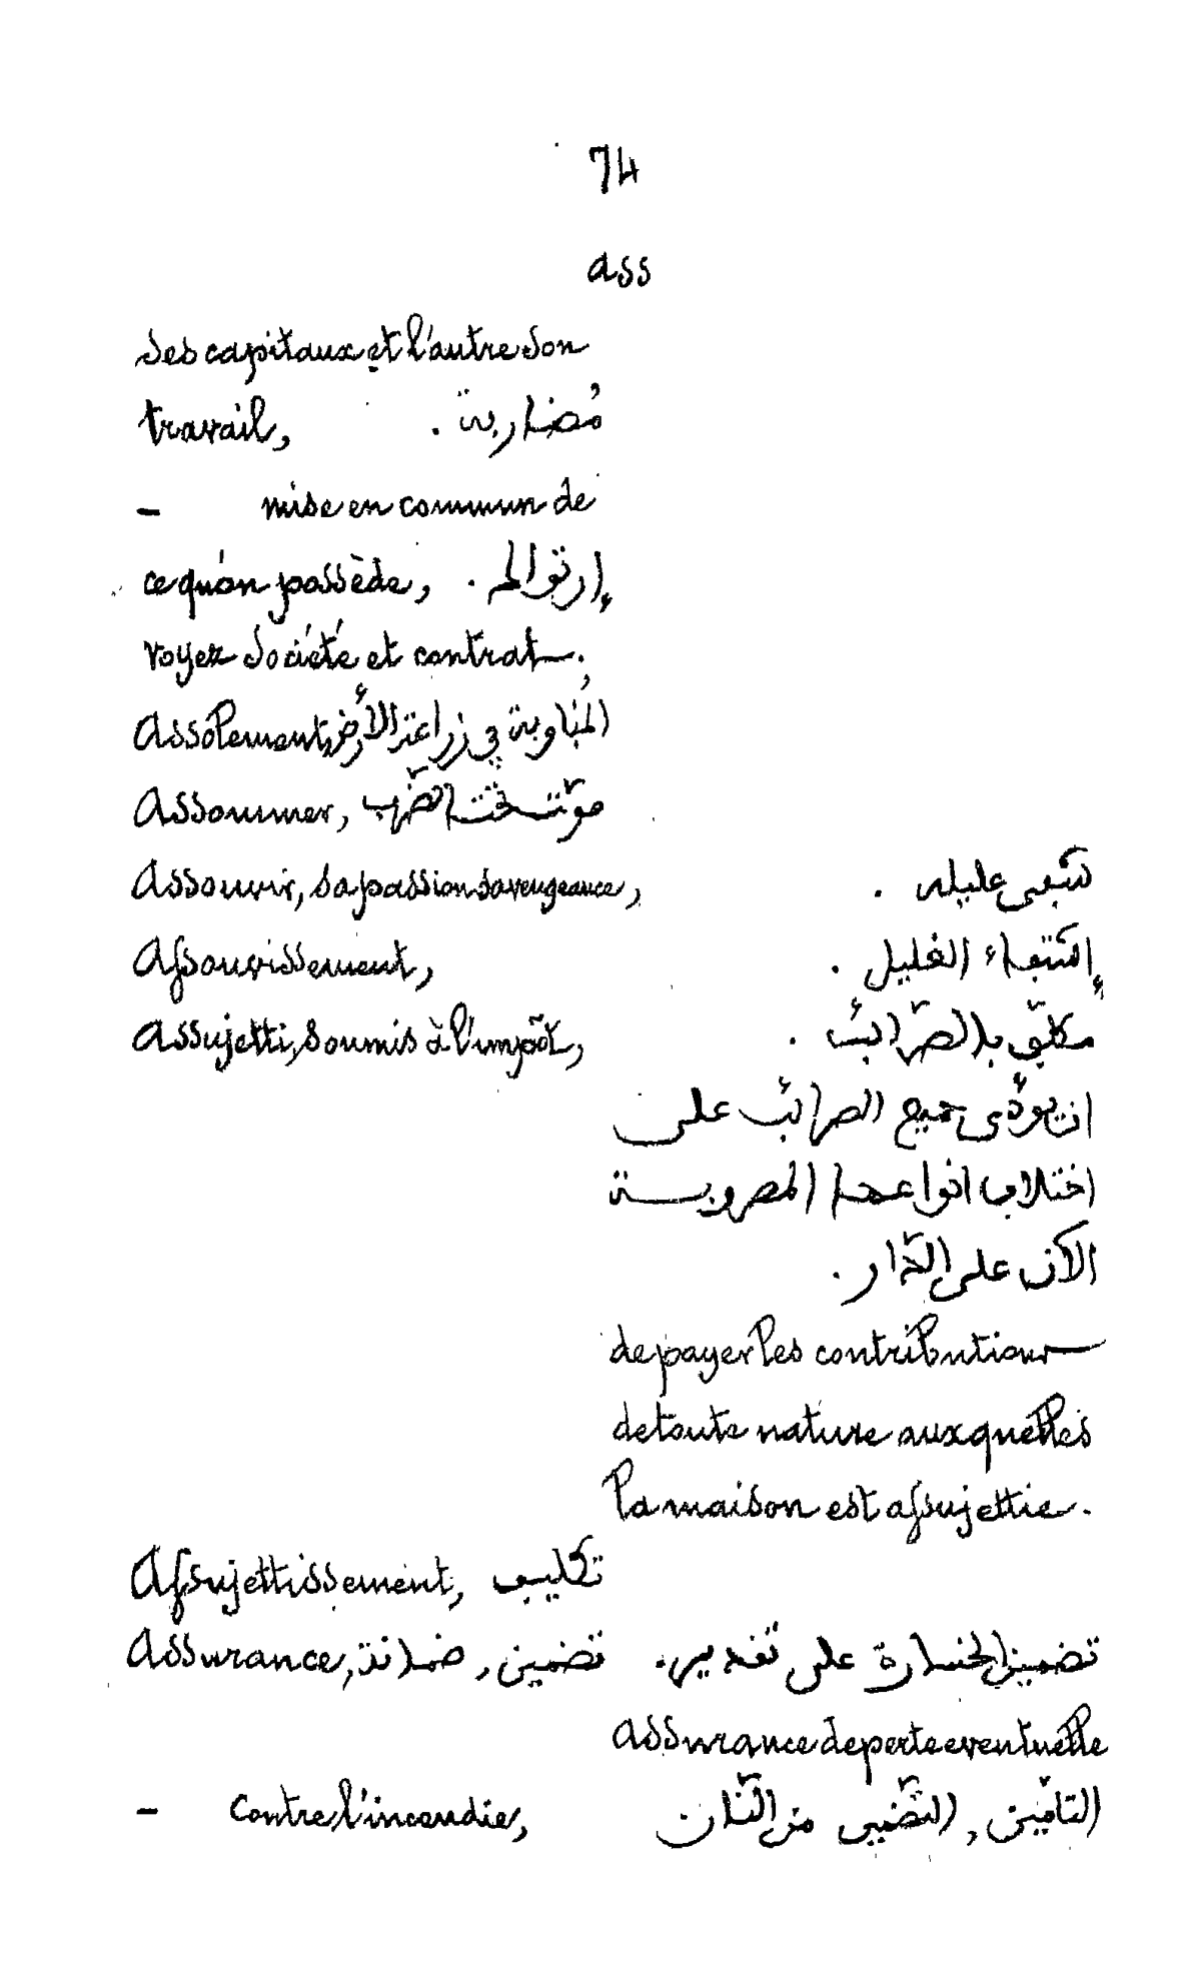 74
ass
ses capitaux et l'autre son
travail, مُضاربة .
- mise en commun de
ce qu'on possède, .
voyez Société et contrat.
Assolement, المُناوبة في زراعة الأرض
Assommer, موّت تحت الضّرب
Assouvir, sa passion sa vengeance, شبعى غليله .
Assouvissement, إشتفاء الغليل .
Assujetti, soumis à l'impôt, مكلّف بالضّرائب .
ان يؤدّى جميع الضرائب على
اختلاف انواعها المضروبة
الآن على الدّار .
de payer les contributions
de toute nature auxquelles
la maison est assujettie.
Assujettissement, تكليف
Assurance, ضمانة , تضمين . تضمين الخسارة على تقدير .
assurance de perte eventuelle
- contre l'incendie, التأمين , التّضمين من النّار